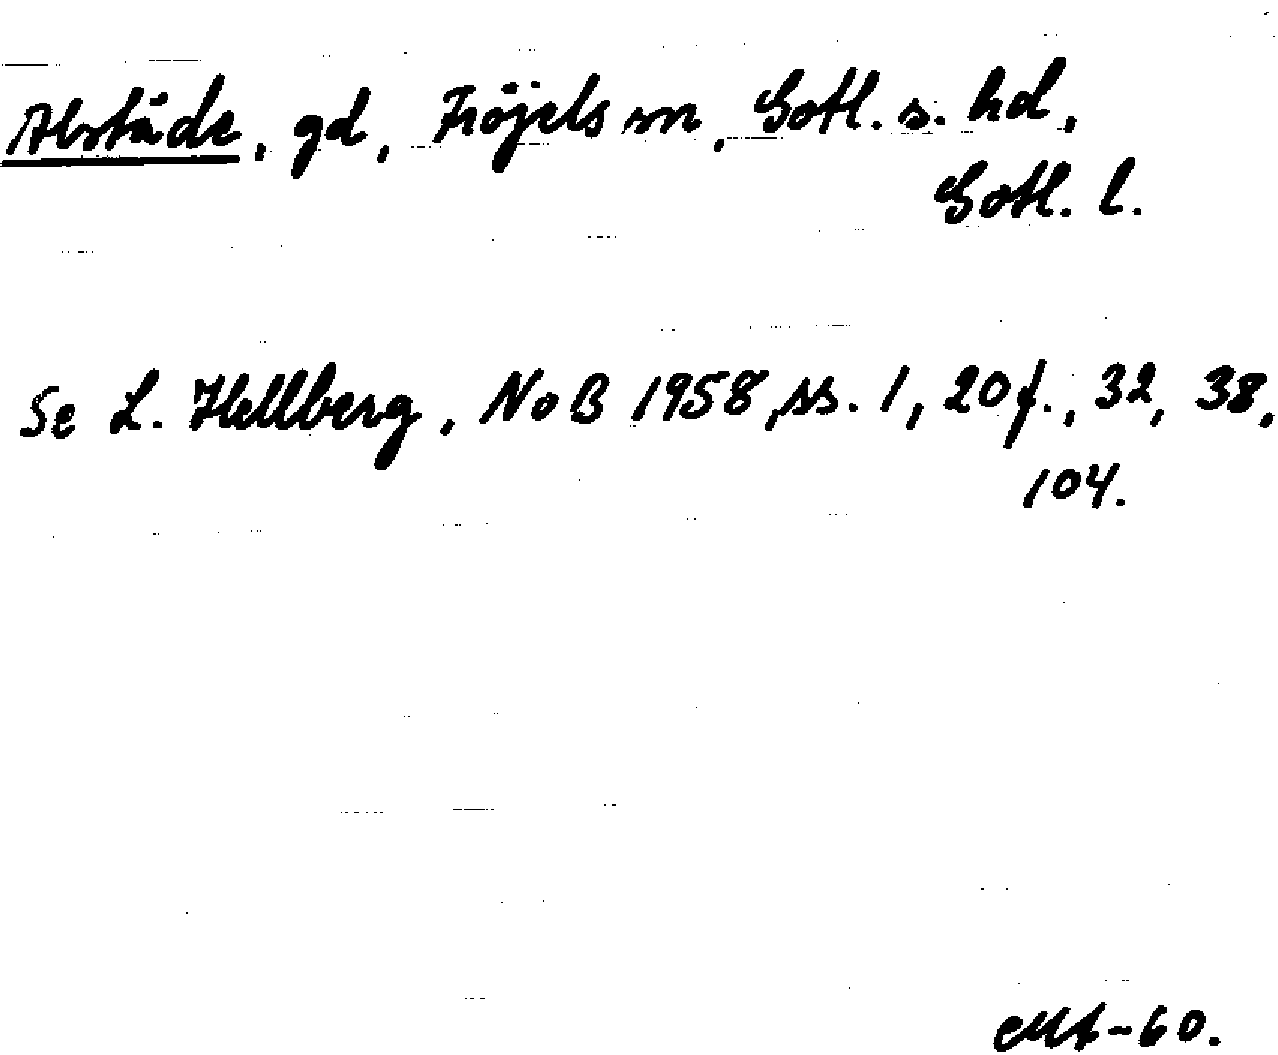 Alstäde, gd, Fröjels sn, Gotl. s. hd,
Gotl. l.
Se L. Hellberg, NoB 1958, ss. 1, 20 f., 32, 38,
104.
-60.